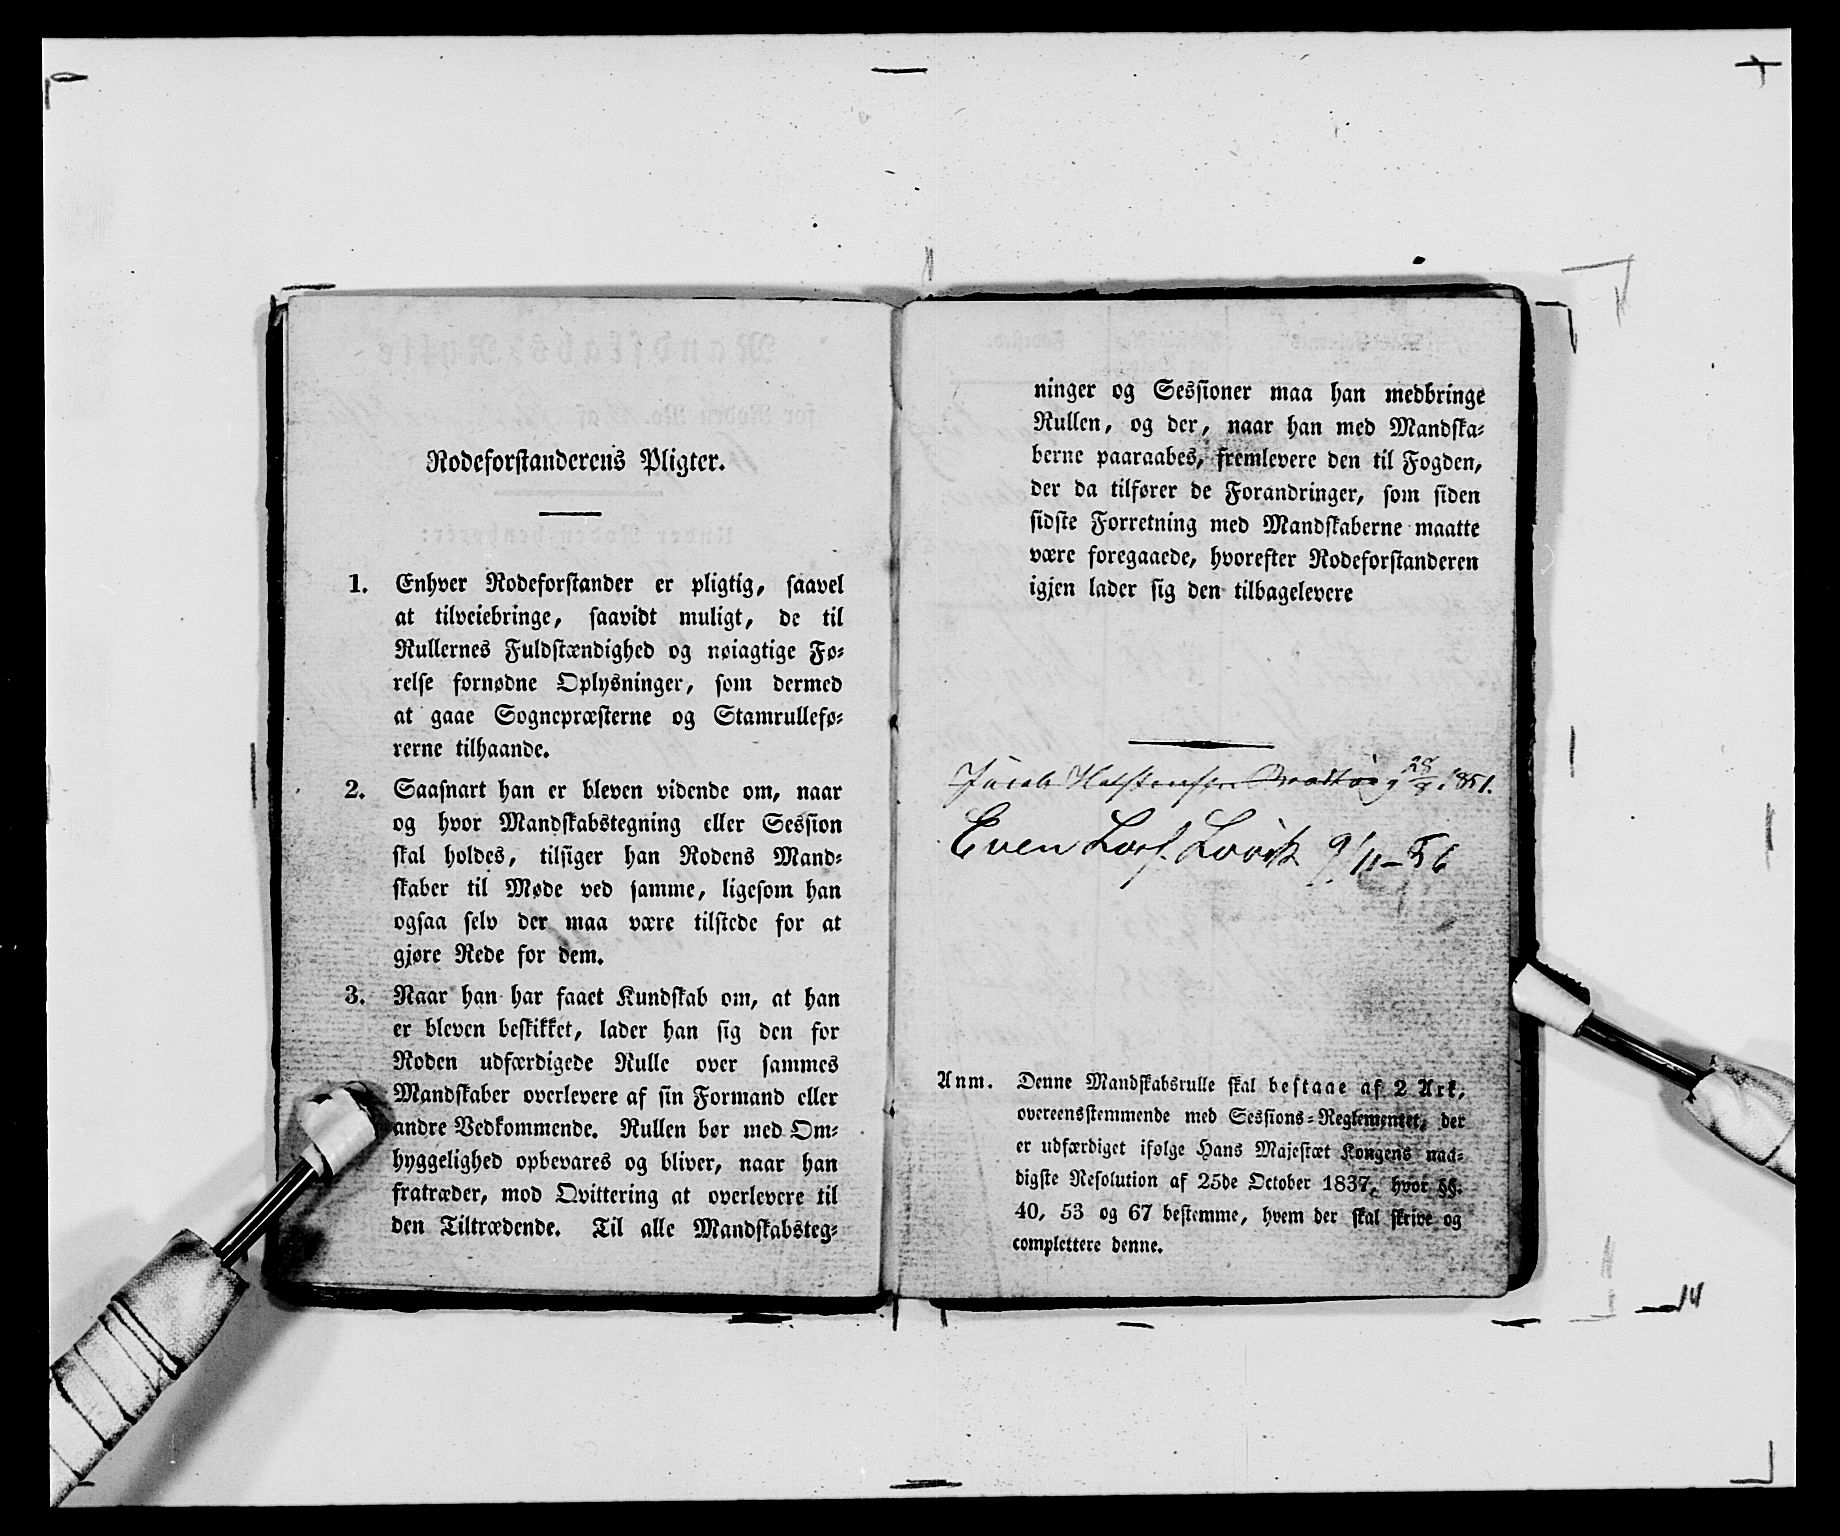 Rodeforstanderens Pligter.
1. Enhver Rodeforstander er pligtig, saavel
at tilveiebringe, saavidt muligt, de til
Rullernes Fuldstændighed og nøiagtige Fø-
relse fornødne Oplysninger, som dermed
at gaae Sognepræsterne og Stamrullefø-
rerne tilhaande.
2. Saasnart han er bleven vidende om, naar
og hvor Mandskabstegning eller Session
skal holdes, tilsiger han Rodens Mand-
skaber til Møde ved samme, ligesom han
ogsaa selv der maa være tilstede for at
gjøre Rede for dem.
3. Naar han har faaet Kundskab om, at han
er bleven beskikket, lader han sig den for
Roden udfærdigede Rulle over sammes
Mandskaber overlevere af sin Formand eller
andre Vedkommende. Rullen bør med Om-
hyggelighed opbevares og bliver, naar han
fratræder, mod Qvittering at overlevere til
den Tiltrædende. Til alle Mandskabsteg-
ninger og Sessioner maa han medbringe
Rullen, og der, naar han med Mandska-
berne paaraabes, fremlevere den til Fogden,
der da tilfører de Forandringer, som siden
sidste Forretning med Mandskaberne maatte
være foregaaede, hvorefter Rodeforstanderen
igjen lader sig den tilbagelevere
Jacob 28/8 1851.
Even 9/11-56
Anm. Denne Mandskabsrulle skal bestaae af 2 Ark,
overeensstemmende med Sessions-Reglementet, der
er udfærdiget ifølge Hans Majestæt Kongens naa-
digste Resolution af 25de October 1837, hvor §§.
40, 53 og 67 bestemme, hvem der skal skrive og
complettere denne.
14